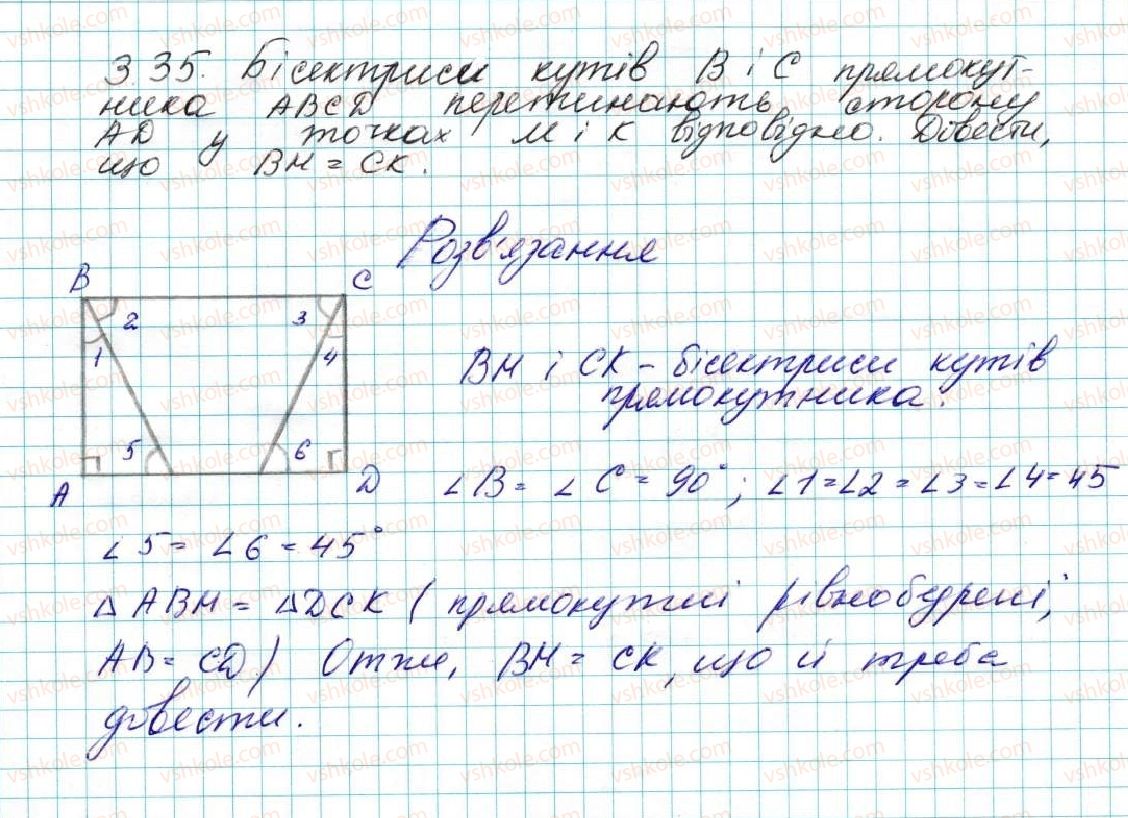 3.35. Бісектриси кутів B і C прямокут-
ника ABCD перетинають сторону
AD у точках M і K відповідно. Довести,
що BM = CK.
Розв'язання
B C
2 3
1 4
5 6
A D
BM і CK – бісектриси кутів
прямокутника.
∠B = ∠C = 90°; ∠1=∠2=∠3=∠4=45
∠5 = ∠6 = 45°
△ABM = △DCK (прямокутні рівнобедрені,
AB = CD) Отже, BM = CK, що й треба
довести.